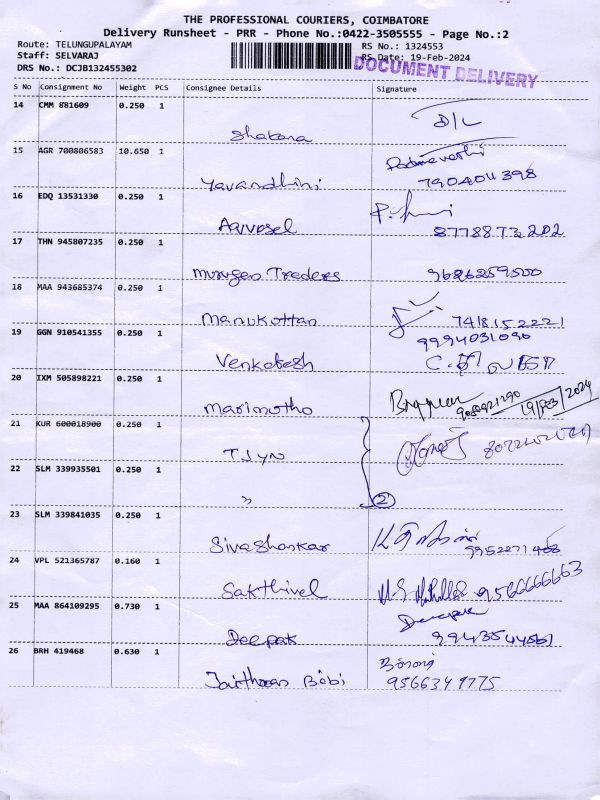 THE PROFESSIONAL COURIERS, COIMBATORE
Delivery Runsheet - PRR - Phone No.:0422-3505555 - Page No.:2
Route: TELUNGUPALAYAM
Staff: SELVARAJ
DRS No.: DCJB132455302
RS No.: 1324553
RS Date: 19-Feb-2024
DOCUMENT DELIVERY
S No Consignment No Weight PCS Consignee Details Signature
14 CMM 881609 0.250 1
D/L
15 AGR 700806583 10.650 1
7904011398
16 EDQ 13531330 0.250 1
8778873202
17 THN 945807235 0.250 1
Murugan Traders 9626259500
18 MAA 943685374 0.250 1
Manukottan 7418152221
19 GGN 910541355 0.250 1 9994031090
Venkatesh
20 IXM 505898221 0.250 1
Marimutho 19/FEB/2024
21 KUR 600018900 0.250 1
TJYN
22 SLM 339935501 0.250 1
" 2
23 SLM 339841035 0.250 1
Sivashankar
24 VPL 521365787 0.160 1
Sakthivel 9566666663
25 MAA 864109295 0.730 1 Deepak
Deepak
26 BRH 419468 0.630 1
Bibi 9566349775